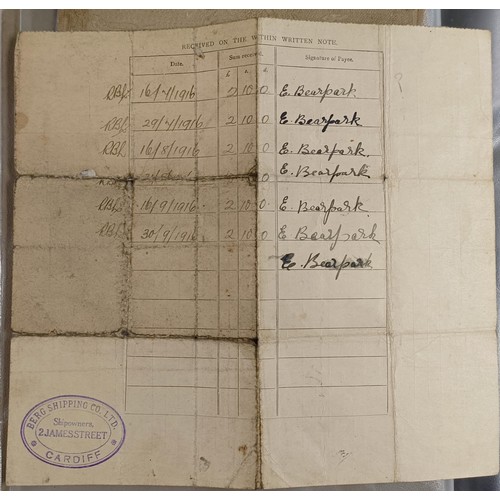 RECEIVED ON THE WITHIN WRITTEN NOTE.
Date. Sum received. Signature of Payee.
£. s. d.
16/7/1916 2 10. 0 E. Bearpark
29/7/1916 2 10. 0 E. Bearpark
16/8/1916 2 10. 0 E. Bearpark.
2 10. 0 E. Bearpark
16/9/1916 2 10. 0. E. Bearpark
30/9/1916 2 10. 0 E. Bearpark
E. Bearpark
BERG SHIPPING CO. LTD.
Shipowners,
2 JAMES STREET
CARDIFF